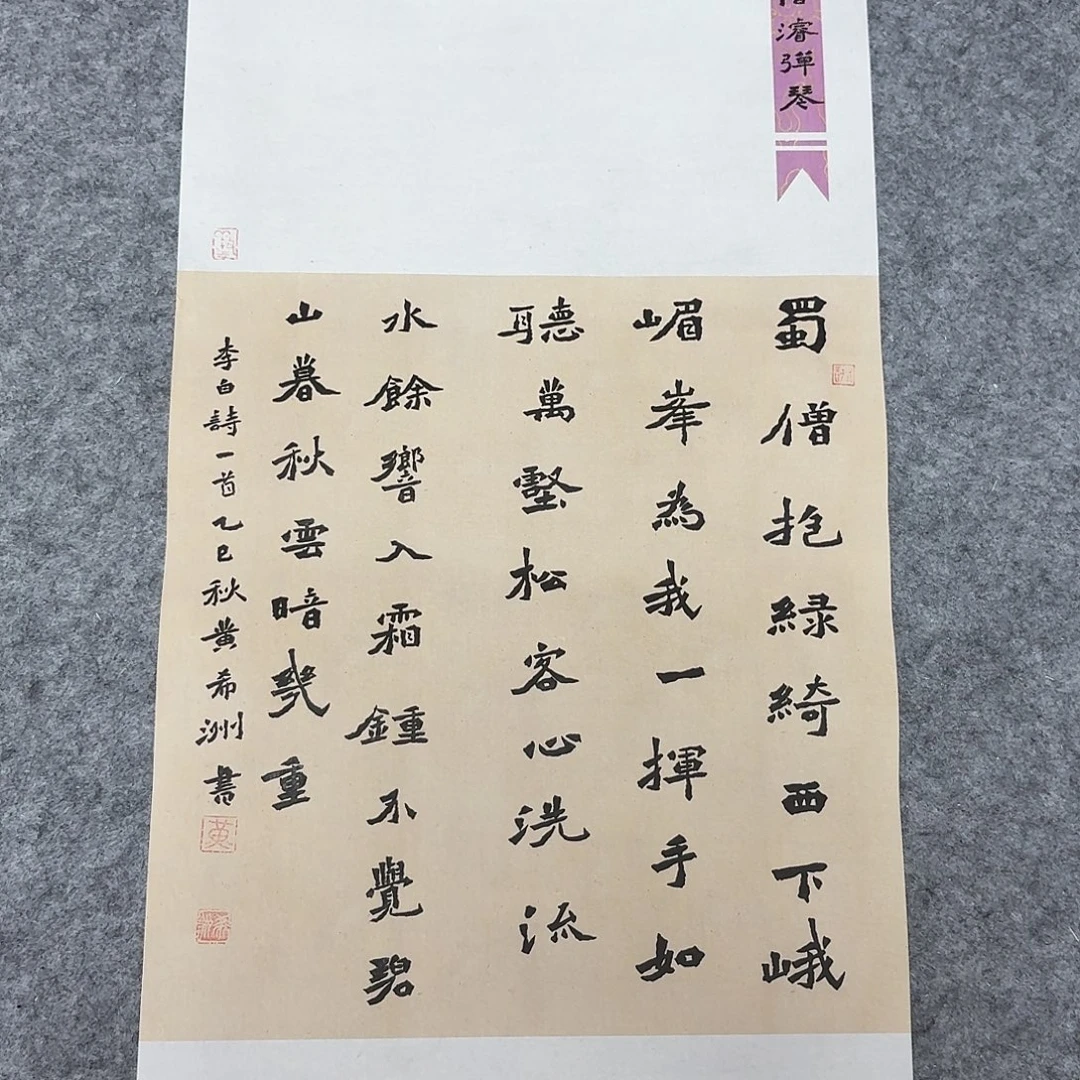 濬彈琴
蜀僧抱緑綺西下峨
嵋峯為我一揮手如
聽萬壑松客心洗流
水餘響入霜鍾不覺碧
山暮秋雲暗幾重
李白詩一首乙巳秋黄希洲書
黃